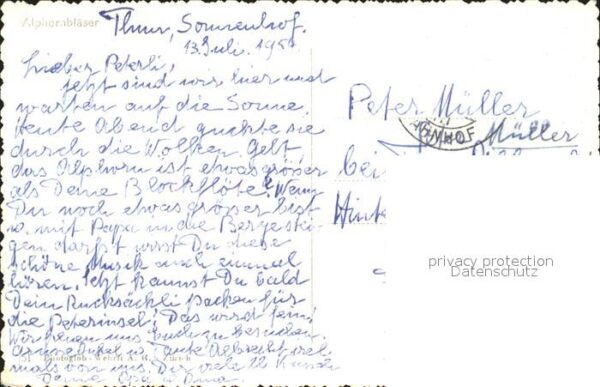 Alphornbläser
Thun, Sonnenhof.
13. Juli. 195
Lieber Peterli,
jetzt sind wir hier und
warten auf die Sonne
Heute Abend guckte sie
durch die Wolken. Gelt
das Alphorn ist etwas grösser
als Deine Blockflöte! Wenn
Du noch etwas grösser bist
u. mit Papa in die Berge stei-
gen darfst wirst Du diese
schöne Musik auch einmal
hören. Jetzt kannst Du bald
Dein Rucksäckli packen für
die Peterinsel! Das wird fein!
Wir freuen uns Euch zu besuchen.
Onkel u. Tante Albrecht
mals von uns. Dir viele
Deine
Photoglob-Wehrli A. G., Zürich
Peter Müller
BAHNHOF
Müller
bei
Hinte
privacy protection
Datenschutz